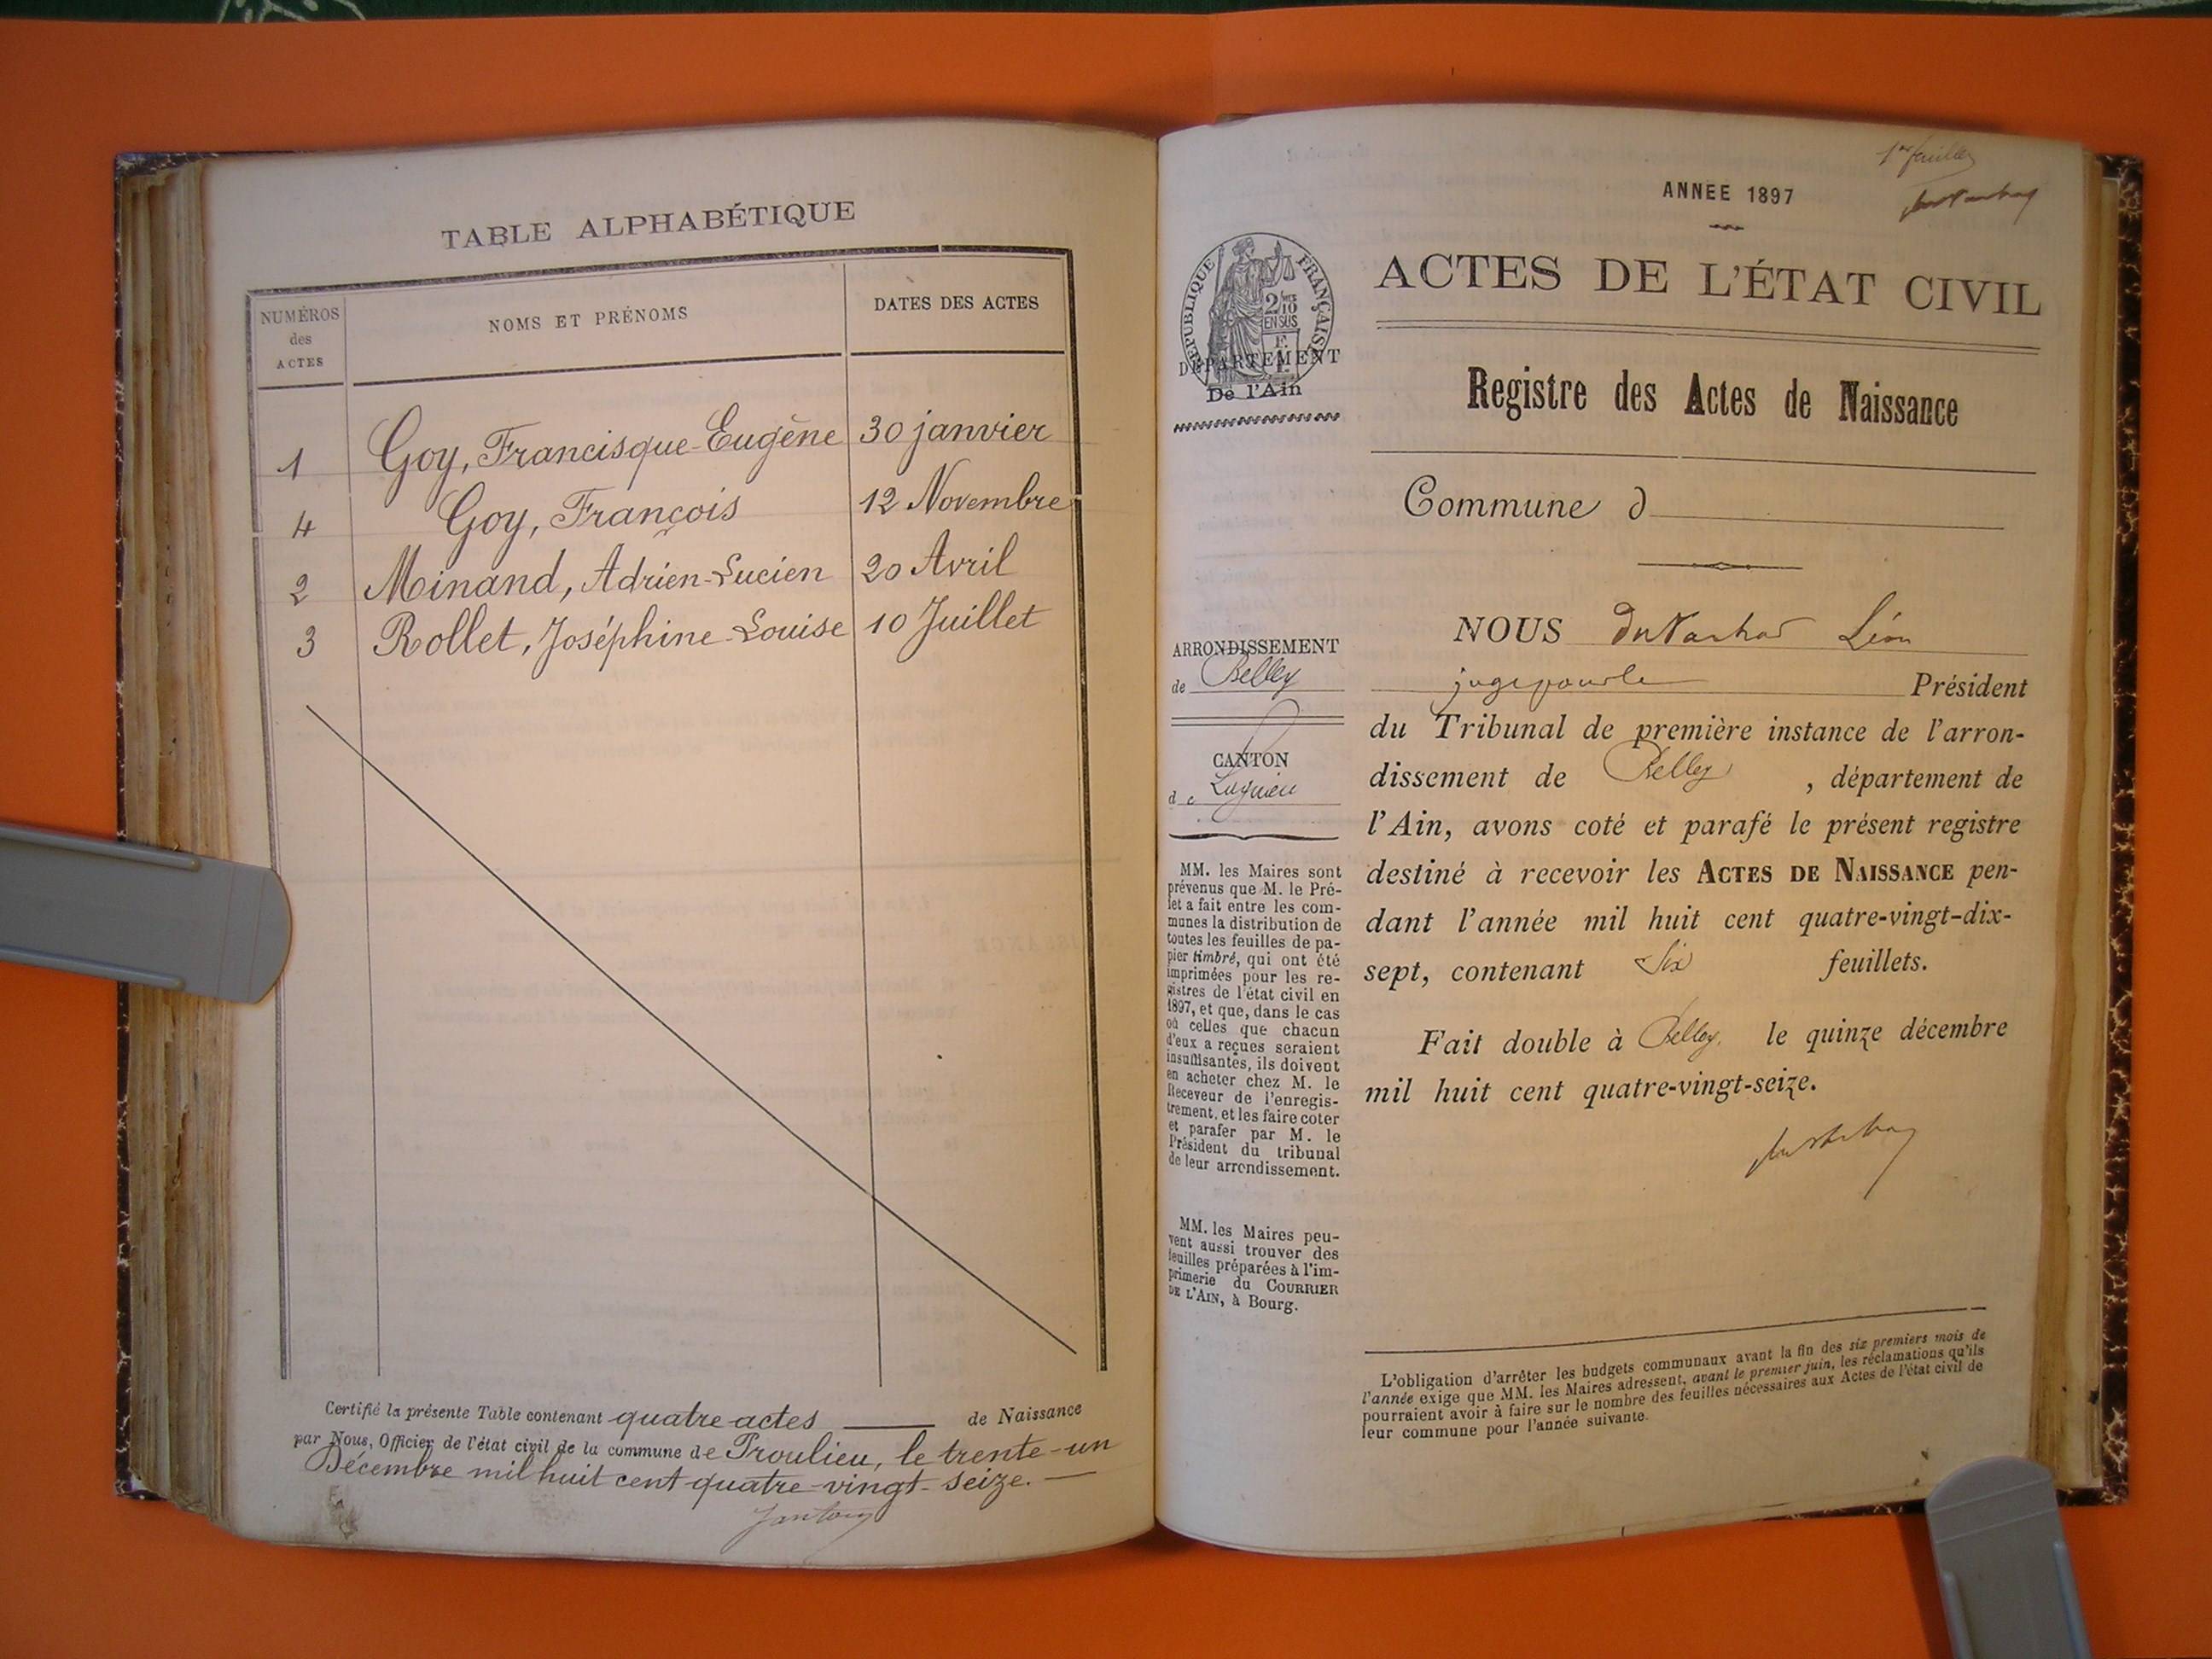 TABLE ALPHABÉTIQUE
NUMÉROS
des
ACTES
NOMS ET PRÉNOMS
DATES DES ACTES
1 Goy, Francisque-Eugène 30 janvier
4 Goy, François 12 Novembre
2 Minand, Adrien-Lucien 20 Avril
3 Rollet, Joséphine-Louise 10 Juillet
Certifié la présente Table contenant quatre actes de Naissance
par Nous, Officier de l'état civil de la commune de Proulieu, le trente-un
Décembre mil huit cent quatre-vingt-seize.
1er feuillet
ANNEE 1897
ACTES DE L'ÉTAT CIVIL
RÉPUBLIQUE FRANÇAISE
2/10
EN SUS
DÉPARTEMENT
De l'Ain
Registre des Actes de Naissance
Commune d
ARRONDISSEMENT
de Belley
CANTON
de Lagnieu
MM. les Maires sont
prévenus que M. le Pré-
fet a fait entre les com-
munes la distribution de
toutes les feuilles de pa-
pier timbré, qui ont été
imprimées pour les re-
gistres de l'état civil en
1897, et que, dans le cas
où celles que chacun
d'eux a reçues seraient
insuffisantes, ils doivent
en acheter chez M. le
Receveur de l'enregis-
trement, et les faire coter
et parafer par M. le
Président du tribunal
de leur arrondissement.
MM. les Maires peu-
vent aussi trouver des
feuilles préparées à l'im-
primerie du COURRIER
DE L'AIN, à Bourg.
NOUS Léon
juge pour le Président
du Tribunal de première instance de l'arron-
dissement de Belley, département de
l'Ain, avons coté et parafé le présent registre
destiné à recevoir les ACTES DE NAISSANCE pen-
dant l'année mil huit cent quatre-vingt-dix-
sept, contenant Six feuillets.
Fait double à Belley, le quinze décembre
mil huit cent quatre-vingt-seize.
L'obligation d'arrêter les budgets communaux avant la fin des six premiers mois de
l'année exige que MM. les Maires adressent, avant le premier juin, les réclamations qu'ils
pourraient avoir à faire sur le nombre des feuilles nécessaires aux Actes de l'état civil de
leur commune pour l'année suivante.